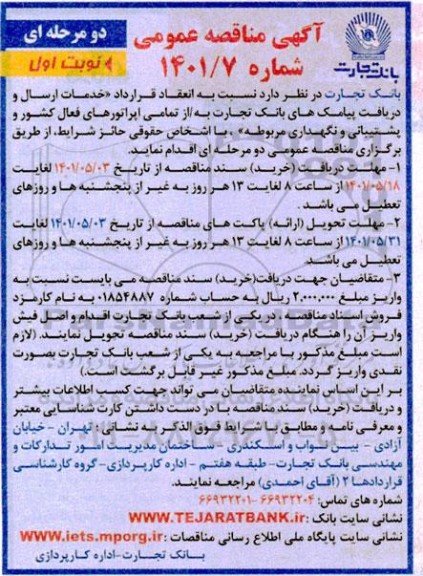 آگهی مناقصه عمومی
شماره ۱۴۰۱/۷
دو مرحله ای
نوبت اول
بانک تجارت
بانک تجارت در نظر دارد نسبت به انعقاد قرارداد «خدمات ارسال و
دریافت پیامک های بانک تجارت به/از تمامی اپراتورهای فعال کشور و
پشتیبانی و نگهداری مربوطه» ، با اشخاص حقوقی حائز شرایط، از طریق
برگزاری مناقصه عمومی دو مرحله ای اقدام نماید.
۱- مهلت دریافت (خرید) سند مناقصه از تاریخ ۱۴۰۱/۰۵/۰۳ لغایت
۱۴۰۱/۰۵/۱۸ از ساعت ۸ لغایت ۱۳ هر روز به غیر از پنجشنبه ها و روزهای
تعطیل می باشد.
۲- مهلت تحویل (ارائه) پاکت های مناقصه از تاریخ ۱۴۰۱/۰۵/۰۳ لغایت
۱۴۰۱/۰۵/۳۱ از ساعت ۸ لغایت ۱۳ هر روز به غیر از پنجشنبه ها و روزهای
تعطیل می باشد.
۳- متقاضیان جهت دریافت (خرید) سند مناقصه می بایست نسبت به
واریز مبلغ ۲,۰۰۰,۰۰۰ ریال به حساب شماره ۰۱۸۵۴۸۸۷ به نام کارمزد
فروش اسناد مناقصه ، در یکی از شعب بانک تجارت اقدام و اصل فیش
واریز آن را هنگام دریافت (خرید) سند مناقصه تحویل نمایند. (لازم
است مبلغ مذکور با مراجعه به یکی از شعب بانک تجارت بصورت
نقدی واریز گردد. مبلغ مذکور غیر قابل برگشت است.)
بر این اساس نماینده متقاضیان می تواند جهت کسب اطلاعات بیشتر
و دریافت (خرید) سند مناقصه با در دست داشتن کارت شناسایی معتبر
و معرفی نامه و مطابق با شرایط فوق الذکر به نشانی : تهران - خیابان
آزادی - بین نواب و اسکندری - ساختمان مدیریت امور تدارکات و
مهندسی بانک تجارت- طبقه هفتم - اداره کارپردازی- گروه کارشناسی
قراردادها ۲ (آقای احمدی) مراجعه نمایند.
شماره های تماس: ۶۶۹۳۲۲۰۴- ۶۶۹۳۲۲۰۱
نشانی سایت بانک : WWW.TEJARATBANK.ir
نشانی سایت پایگاه ملی اطلاع رسانی مناقصات : WWW.iets.mporg.ir
بانک تجارت-اداره کارپردازی